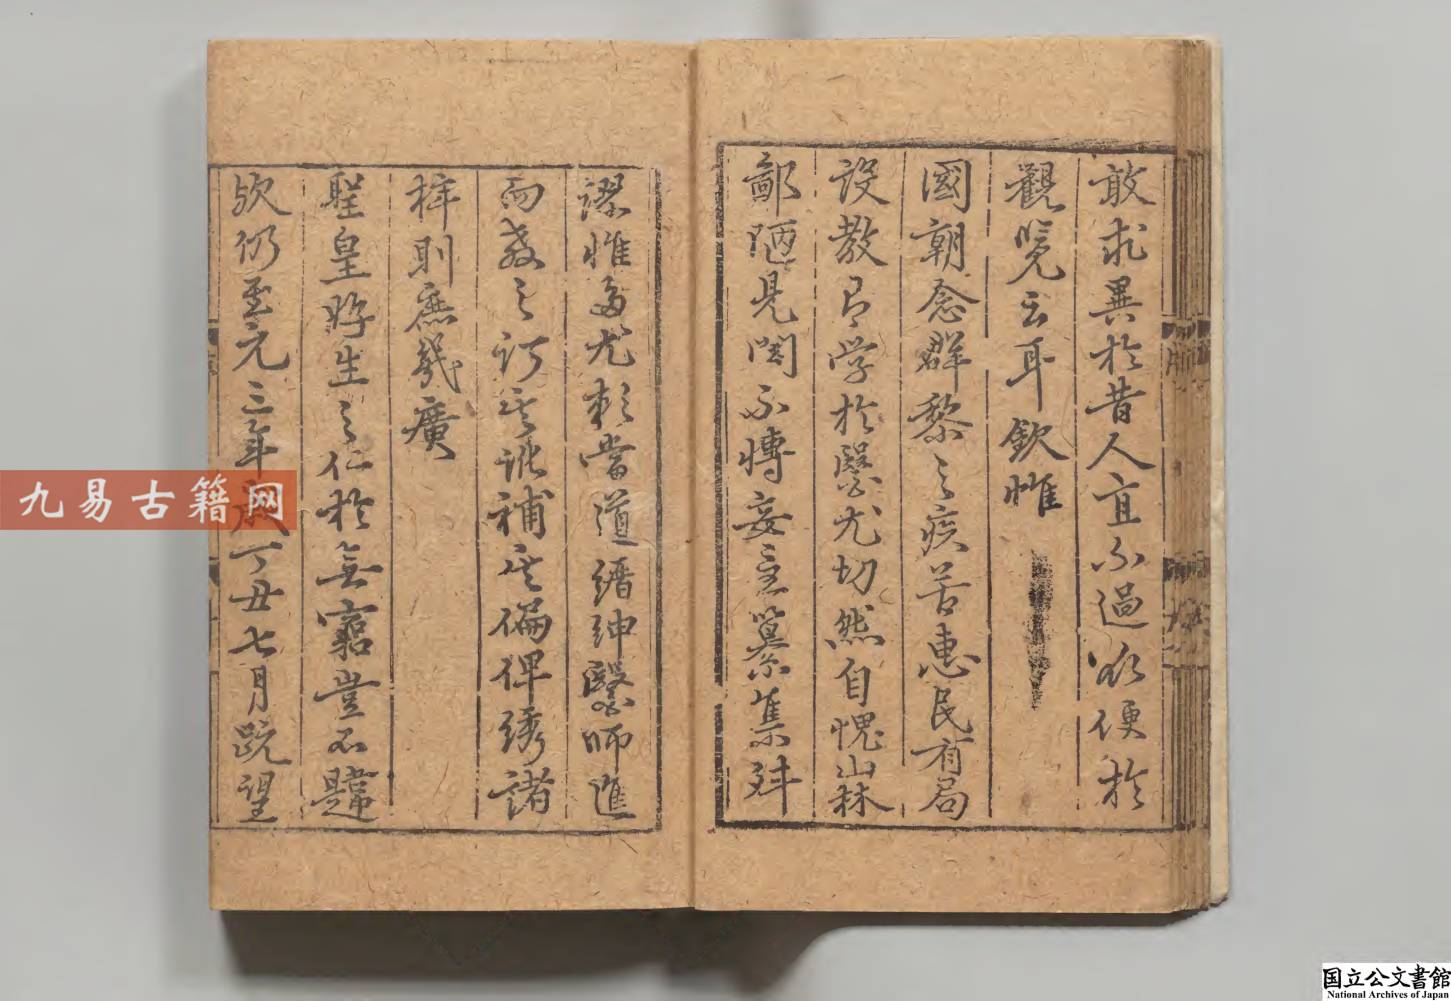 敢求異於昔人宜不過欲便於
觀覽云耳欽惟
國朝念群黎之疾苦惠民有局
設教有學於醫尤切然自愧山林
鄙陋見聞不博妄意纂集舛
謬惟多尤賴當道縉紳醫師進
而教之訂其訛補其偏俾綉諸
梓則庶幾廣
聖皇好生之仁於無窮豈不韙
欤仍至元三年歲丁丑七月既望
九易古籍网
国立公文書館
National Archives of Japan